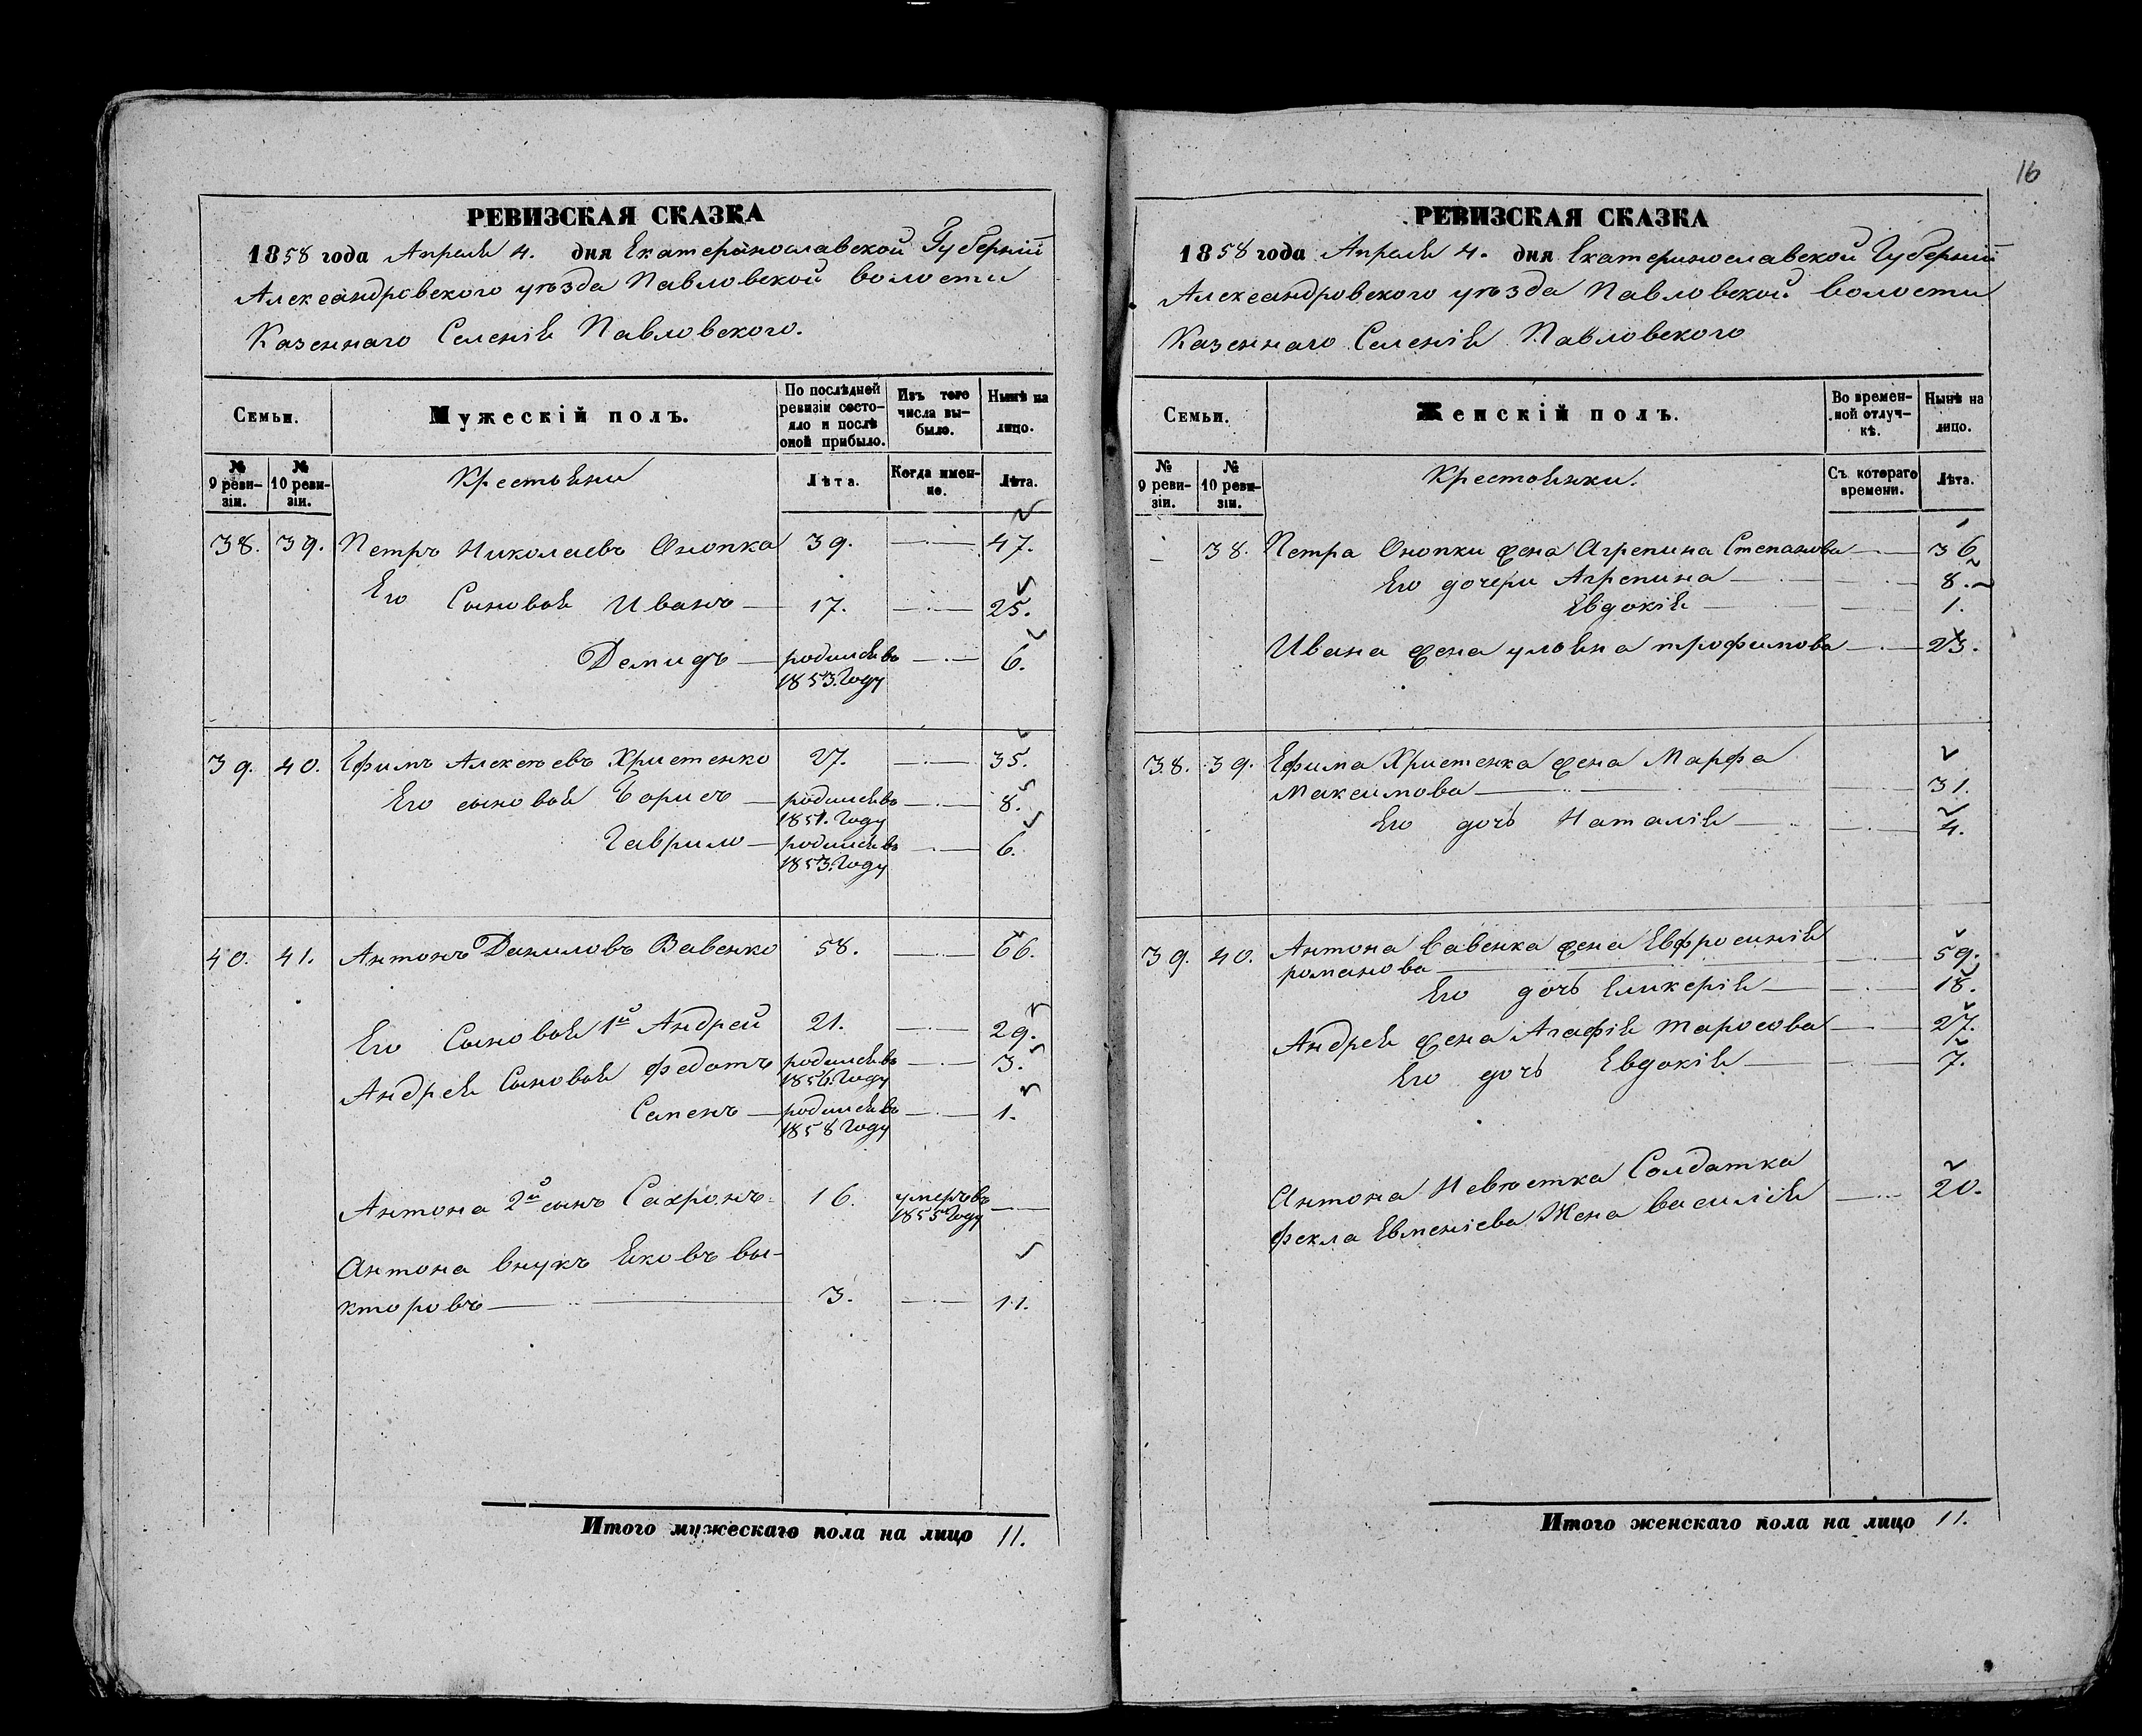 16
РЕВИЗСКАЯ СКАЗКА
1858 года Апреля 4. дня Екатеринославской Губерніи
Александровского уѣзда Павловской волости
Казеннаго Селенія Павловского.
Семьи.
Мужескій полъ.
По послѣдней ревизіи состояло и послѣ оной прибыло.
Изъ того числа выбыло.
Нынѣ на лицо.
№ 9 ревизіи.
№ 10 ревизіи.
Крестьяни
Лѣта.
Когда именно.
Лѣта.
38. 39. Петръ Николаевъ Онопка 39. 47.
Его Сыновья Иванъ 17. 25.
Демидъ родился въ 1853. Году 6.
39. 40. Ефимъ Алексѣевъ Христенко 27. 35.
Его сыновья Борисъ родился въ 1851. Году 8.
Гаврило родился въ 1853. Году 6.
40. 41. Антонъ Даниловъ Вавенко 58. 66.
Его Сыновья 1й Андрей 21. 29.
Андрея Сыновья Федотъ родился въ 1856. Году 3.
Семенъ родился въ 1858 Году 1.
Антона 2й сынъ Сахронъ 16. умеръ въ 1855 Году
Антона внукъ Яковъ вы-
кторовъ 3. 11.
Итого мужескаго пола на лицо 11.
РЕВИЗСКАЯ СКАЗКА
1858 года Апреля 4. дня Екатеринославской Губерніи
Александровского уѣзда Павловской волости
Казеннаго Селенія Павловского
Семьи.
Женскій полъ.
Во временной отлучкѣ.
Нынѣ на лицо.
№ 9 ревизіи.
№ 10 ревизіи.
Крестьянки.
Съ котораго времени.
Лѣта.
38. Петра Онопки жена Агрепина Степанова 36
Его дочери Агрепина 8.
Евдокія 1.
Ивана жена ульяна трофимова 23.
38. 39. Ефима Христенка жена Марфа
Максимова 31.
Его дочь Наталія 4.
39. 40. Антона Вавенка жена Евфросинія
романова 59.
Его дочь Гликерія 18.
Андрея жена Агафія Таросова 27.
Его дочь Евдокія 7.
Антона Невѣстка Солдатка
Фекла Евменіева Жена василія 20.
Итого женскаго пола на лицо 11.